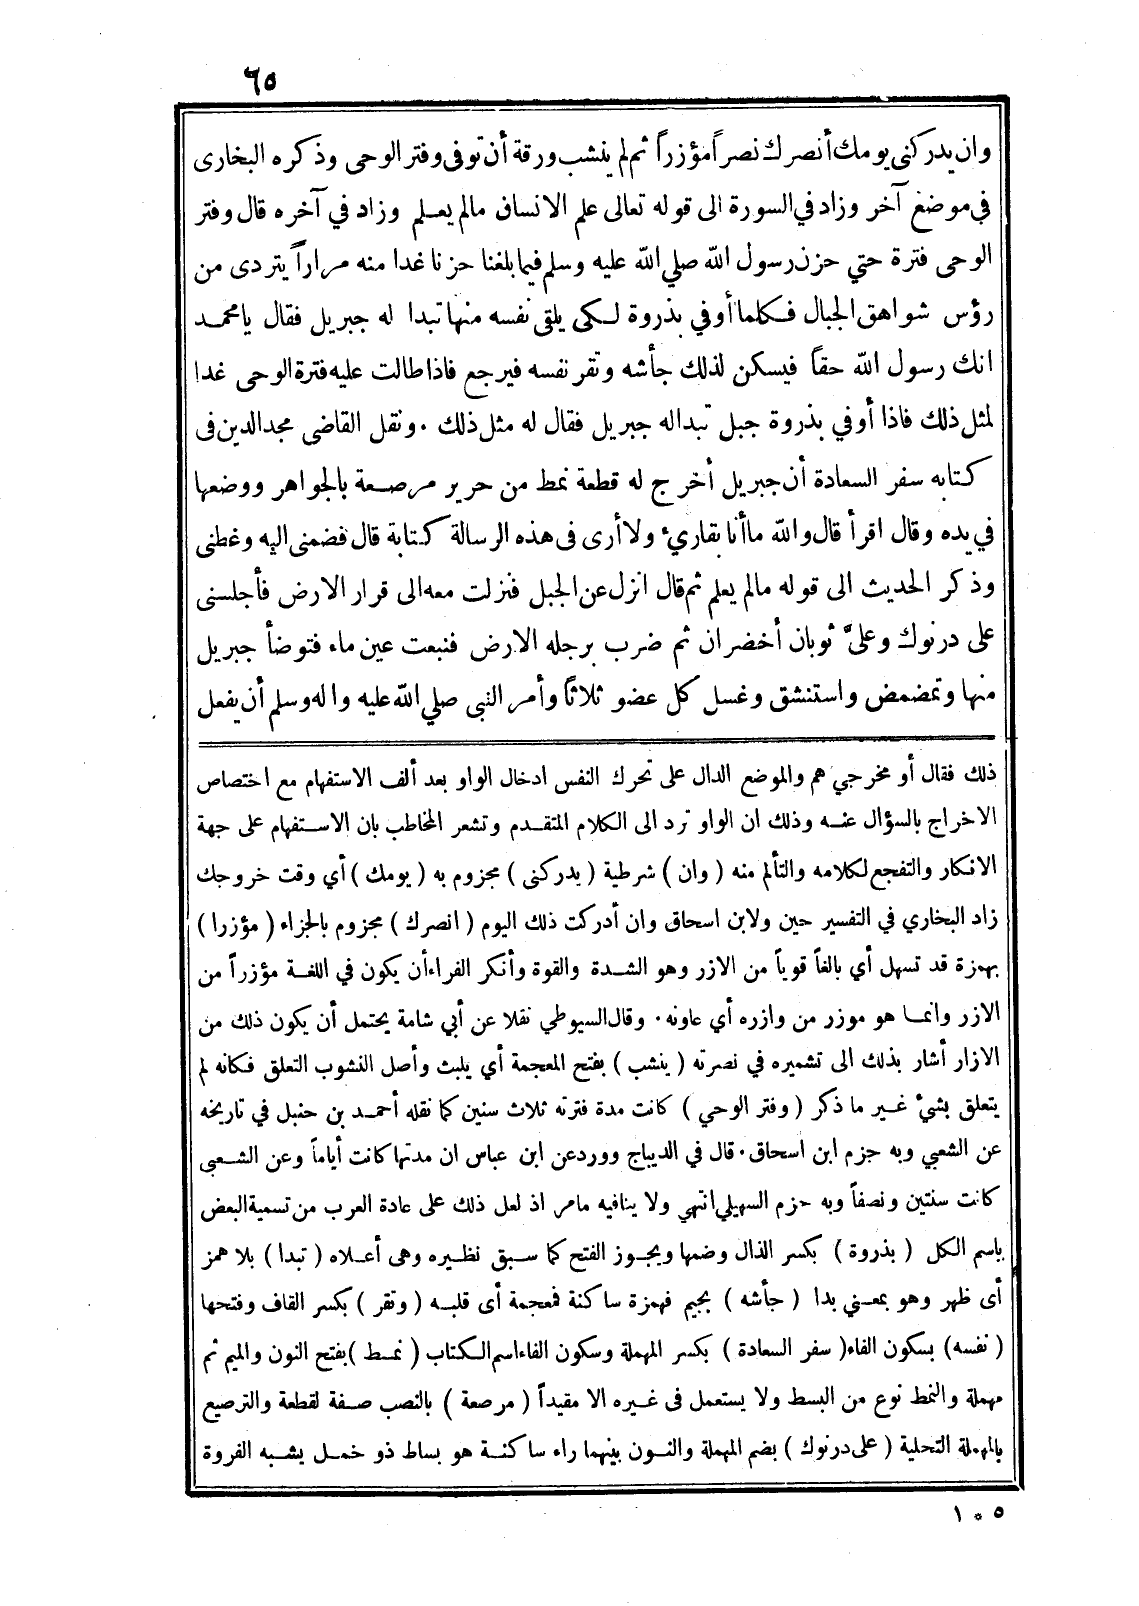 ٦٥
وان يدركنى يومك أنصرك نصراً مؤزراً ثم لم ينشب ورقة أن توفى وفتر الوحى وذكره البخارى
في موضع آخر وزاد في السورة الى قوله تعالى علم الانسان مالم يعلم وزاد في آخره قال وفتر
الوحى فترة حتي حزن رسول الله صلي الله عليه وسلم فيما بلغنا حزنا غدا منه مراراً يتردى من
رؤس شواهق الجبال فكلما أوفي بذروة لكى يلقى نفسه منها تبدا له جبريل فقال يا محمد
انك رسول الله حقاً فيسكن لذلك جأشه وتقر نفسه فيرجع فاذا طالت عليه فترة الوحى غدا
لمثل ذلك فاذا أوفي بذروة جبل تبدا له جبريل فقال له مثل ذلك . ونقل القاضى مجد الدين فى
كتابه سفر السعادة أن جبريل أخرج له قطعة نمط من حرير مرصعة بالجواهر ووضعها
في يده وقال اقرأ قال والله ما أنا بقاريء ولا أرى فى هذه الرسالة كتابة قال فضمنى اليه وغطنى
وذكر الحديث الى قوله مالم يعلم ثم قال انزل عن الجبل فنزلت معه الى قرار الارض فأجلسنى
على درنوك وعليَّ ثوبان أخضران ثم ضرب برجله الارض فنبعت عين ماء فتوضأ جبريل
منها وتمضمض واستنشق وغسل كل عضو ثلاثاً وأمر النبى صلي الله عليه واله وسلم أن يفعل
ذلك فقال أو مخرجي هم والموضع الدال على تحرك النفس ادخال الواو بعد ألف الاستفهام مع اختصاص
الاخراج بالسؤال عنه وذلك ان الواو ترد الى الكلام المتقدم وتشعر المخاطب بان الاستفهام على جهة
الانكار والتفجع لكلامه والتألم منه ( وان ) شرطية ( يدركنى ) مجزوم به ( يومك ) أي وقت خروجك
زاد البخاري في التفسير حين ولابن اسحاق وان أدركت ذلك اليوم ( انصرك ) مجزوم بالجزاء ( مؤزرا )
بهمزة قد تسهل أي بالغاً قوياً من الازر وهو الشدة والقوة وأنكر الفراء أن يكون في اللغة مؤزراً من
الازر وانما هو موزر من وازره أي عاونه . وقال السيوطي نقلا عن أبي شامة يحتمل أن يكون ذلك من
الازار أشار بذلك الى تشميره في نصرته ( ينشب ) بفتح المعجمة أي يلبث وأصل النشوب التعلق فكانه لم
يتعلق بشيء غير ما ذكر ( وفتر الوحي ) كانت مدة فترته ثلاث سنين كما نقله أحمد بن حنبل في تاريخه
عن الشعبي وبه جزم ابن اسحاق . قال في الديباج وورد عن ابن عباس ان مدتها كانت أياماً وعن الشعبى
كانت سنتين ونصفاً وبه جزم السهيلي انتهي ولا ينافيه مامر اذ لعل ذلك على عادة العرب من تسمية البعض
باسم الكل ( بذروة ) بكسر الذال وضمها ويجوز الفتح كما سبق نظيره وهى أعلاه ( تبدا ) بلا همز
أى ظهر وهو بمعني بدا ( جأشه ) بجيم فهمزة ساكنة فمعجمة أى قلبه ( وتقر ) بكسر القاف وفتحها
( نفسه ) بسكون الفاء ( سفر السعادة ) بكسر المهملة وسكون الفاء اسم الكتاب ( نمط ) بفتح النون والميم ثم
مهملة والنمط نوع من البسط ولا يستعمل فى غيره الا مقيداً ( مرصعة ) بالنصب صفة لقطعة والترصيع
بالمهملة التحلية ( على درنوك ) بضم المهملة والنون بينهما راء ساكنة هو بساط ذو خمل يشبه الفروة
٥ * ١